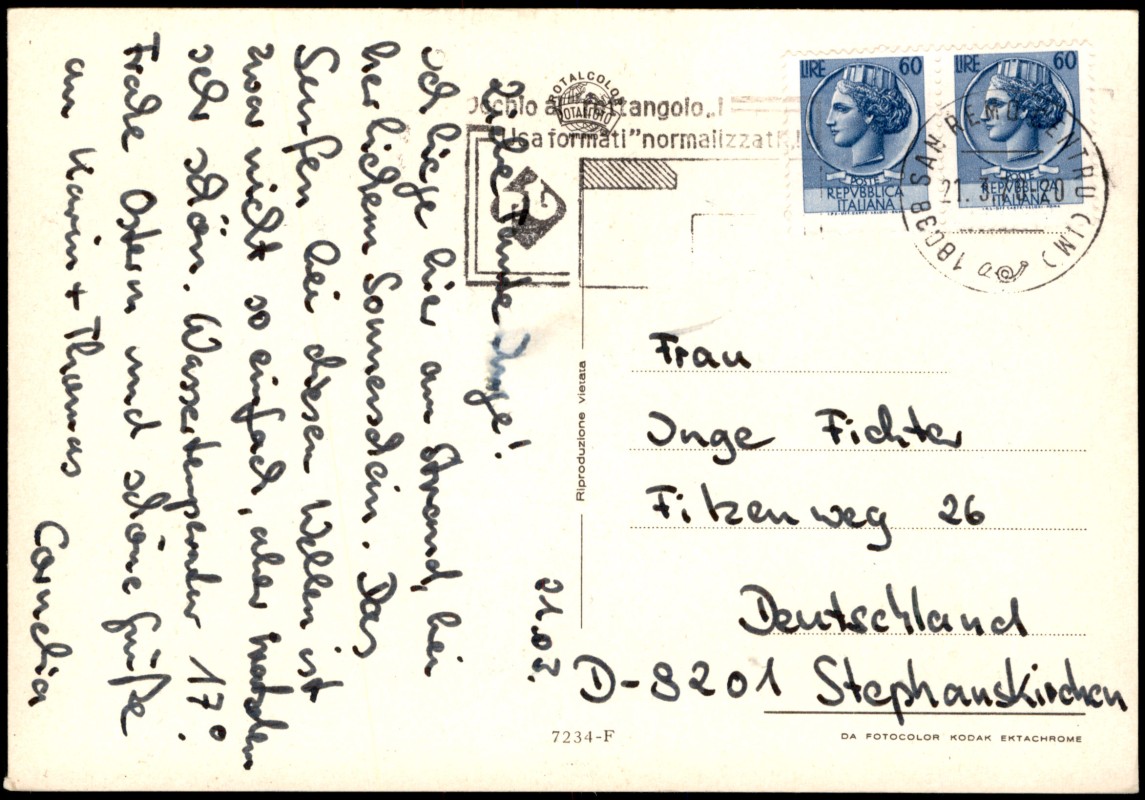 21.03.
Liebe Tante Inge!
ich liege hier am Strand, bei
herlichem Sonnenschein. Das
Surfen bei diesen Wellen ist
zwar nicht so einfach, aber trotzdem
sehr schön. Wassertemperatur 17°.
Frohe Ostern und schöne Grüße
an Karin + Thomas
Cornelia
ROTALCOLOR
ROTALFOTO
Occhio al rettangolo,, !
Usa formati "normalizzati,, !
LIRE 60
POSTE
REPVBBLICA
ITALIANA
LIRE 60
POSTE
REPVBBLICA
ITALIANA
18038 SAN REMO CENTRO (IM)
Riproduzione vietata
Frau
Inge Fichter
Fitzenweg 26
Deutschland
D-8201 Stephanskirchen
7234-F
DA FOTOCOLOR KODAK EKTACHROME